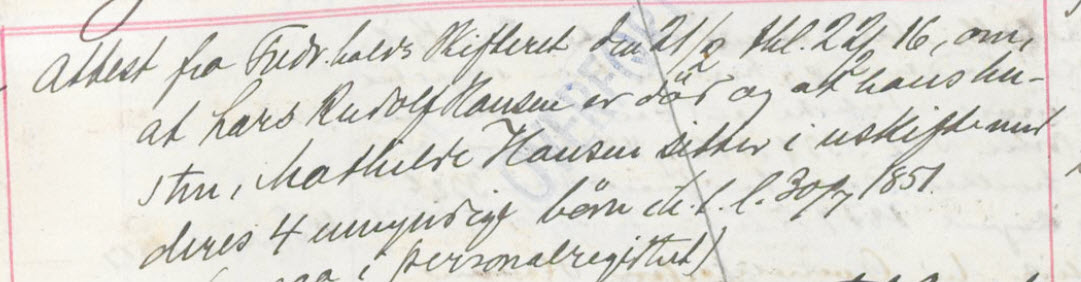 Attest fra Fredr.halds Skifteret den 21/2 thl. 22/ 16, om,
at Lars Rudolf Hansen er død og at hans hu-
stru, Mathilde Hansen sitter i uskifte med
deres 4 umyndige børn
i personalregistret)
OVERFØRT